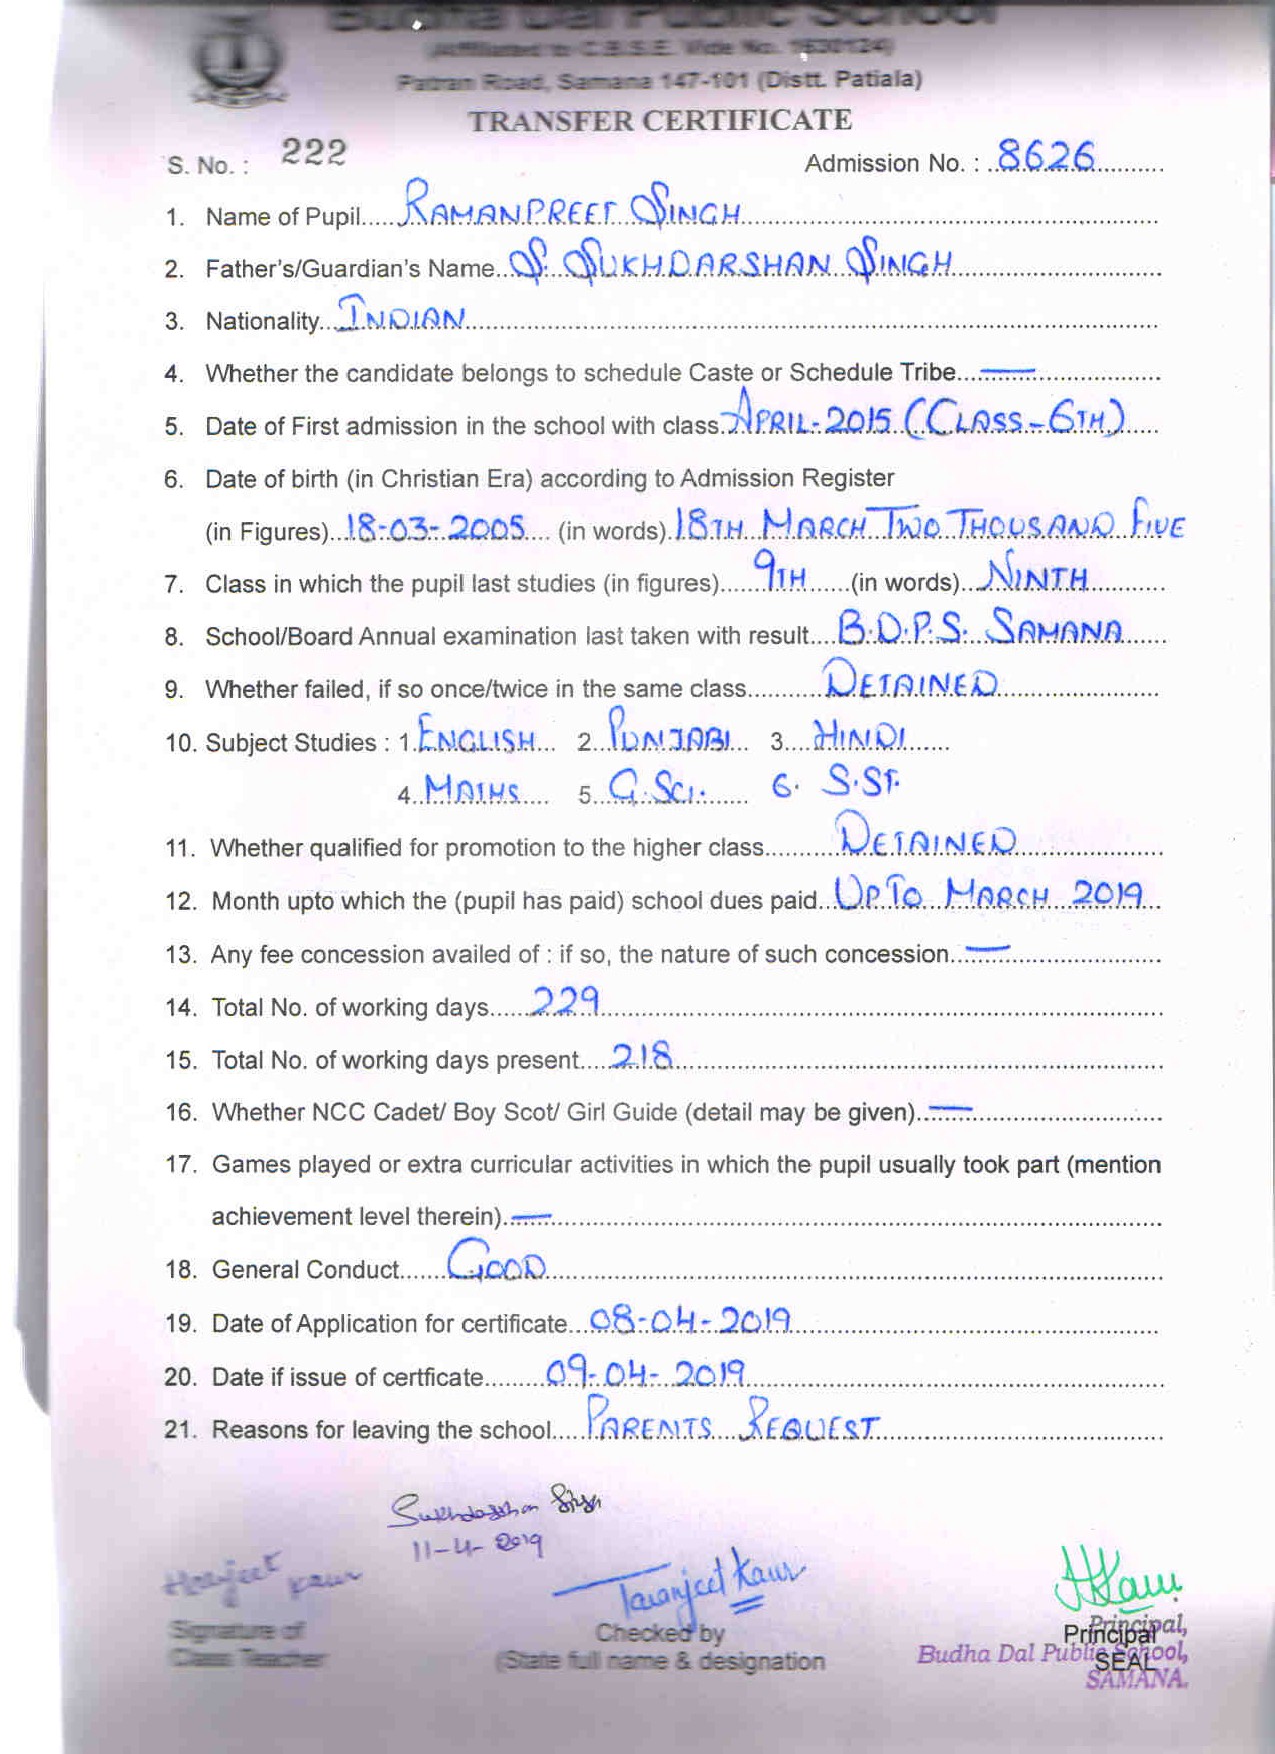 Budha Dal Public School
(Affiliated to C.B.S.E. Vide No. 1630124)
Patran Road, Samana 147-101 (Distt. Patiala)
TRANSFER CERTIFICATE
S. No. : 222 Admission No. : 8626
1. Name of Pupil RAMANPREET SINGH
2. Father's/Guardian's Name S. SUKHDARSHAN SINGH
3. Nationality INDIAN
4. Whether the candidate belongs to schedule Caste or Schedule Tribe —
5. Date of First admission in the school with class APRIL-2015 (CLASS-6TH)
6. Date of birth (in Christian Era) according to Admission Register
(in Figures) 18-03-2005 (in words) 18TH MARCH TWO THOUSAND FIVE
7. Class in which the pupil last studies (in figures) 9TH (in words) NINTH
8. School/Board Annual examination last taken with result B.D.P.S. SAMANA
9. Whether failed, if so once/twice in the same class DETAINED
10. Subject Studies : 1. ENGLISH 2. PUNJABI 3. HINDI
4. MATHS 5. G.SCI. 6. S.ST.
11. Whether qualified for promotion to the higher class DETAINED
12. Month upto which the (pupil has paid) school dues paid UPTO MARCH 2019
13. Any fee concession availed of : if so, the nature of such concession —
14. Total No. of working days 229
15. Total No. of working days present 218
16. Whether NCC Cadet/ Boy Scot/ Girl Guide (detail may be given) —
17. Games played or extra curricular activities in which the pupil usually took part (mention
achievement level therein) —
18. General Conduct GOOD
19. Date of Application for certificate 08-04-2019
20. Date if issue of certficate 09-04-2019
21. Reasons for leaving the school PARENTS REQUEST
Sukhdarshan Singh
11-4-2019
Harjeet Kaur Taranjeet Kaur
Signature of Checked by Principal
Class Teacher (State full name & designation SEAL
Principal,
Budha Dal Public School,
SAMANA.